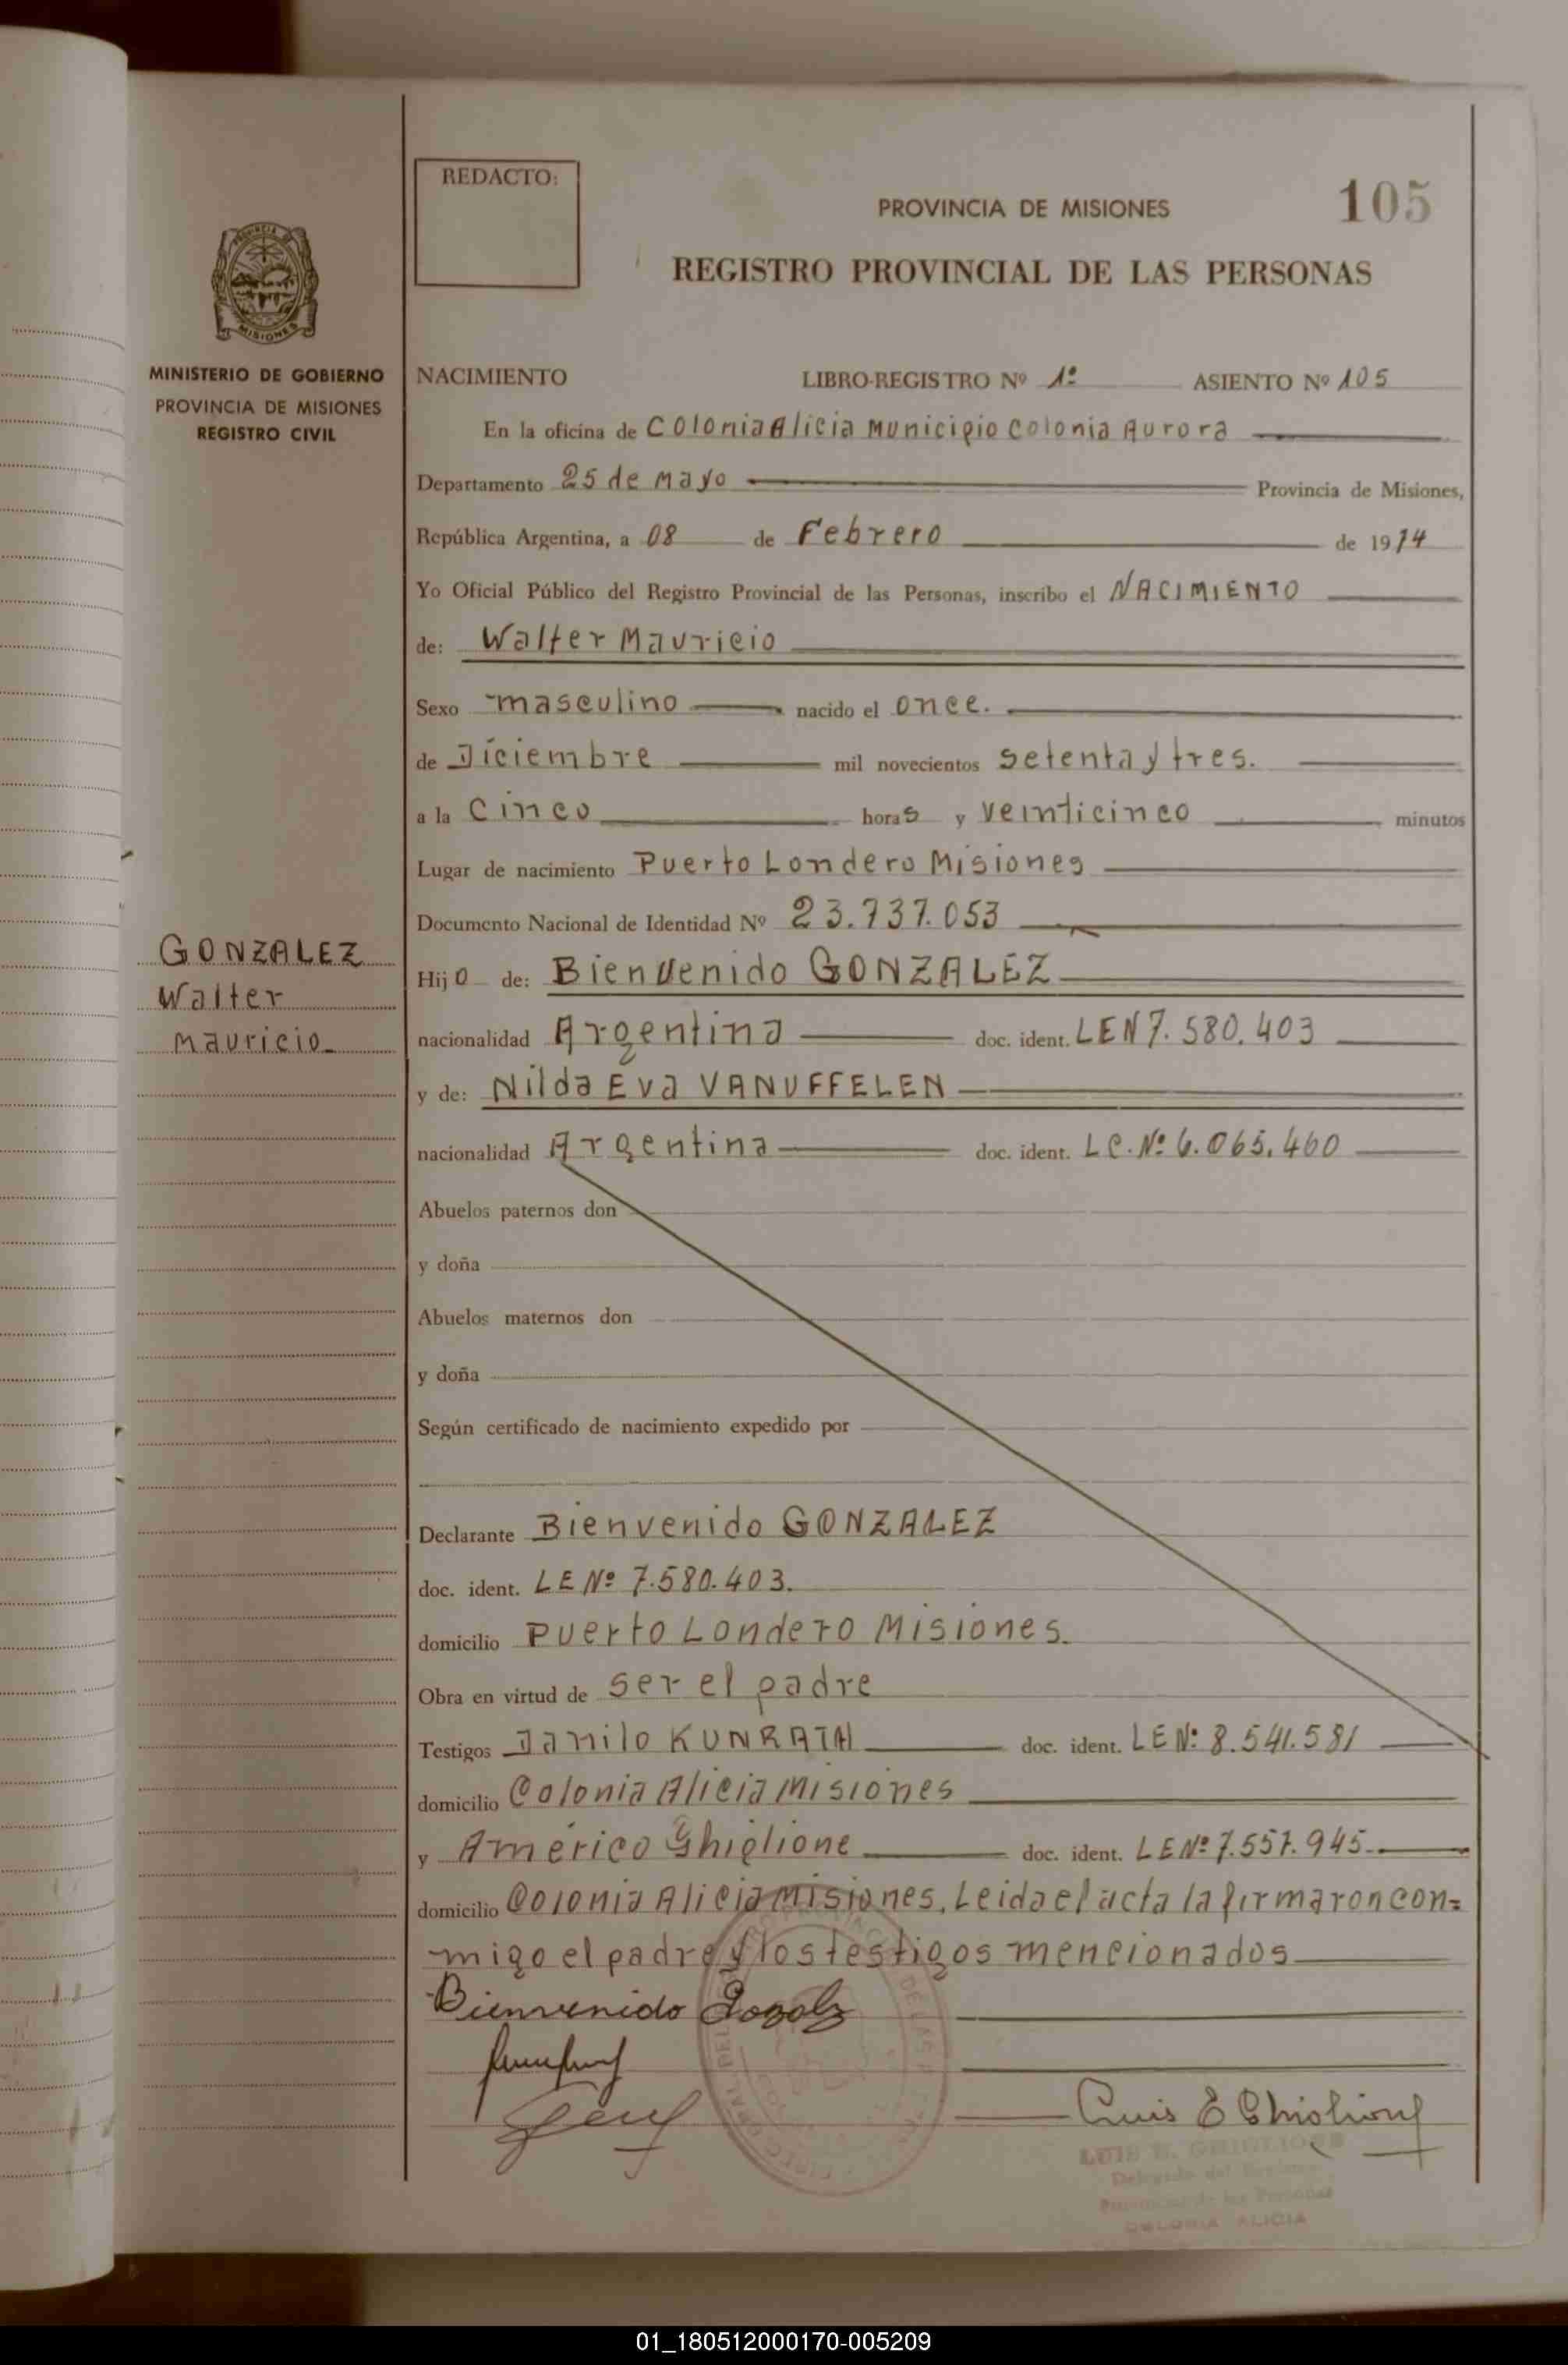 REDACTO:
PROVINCIA DE MISIONES
105
REGISTRO PROVINCIAL DE LAS PERSONAS
MISIONES
MINISTERIO DE GOBIERNO
PROVINCIA DE MISIONES
REGISTRO CIVIL
NACIMIENTO LIBRO-REGISTRO Nº 1º ASIENTO Nº 105
En la oficina de Colonia Alicia Municipio Colonia Aurora
Departamento 25 de Mayo Provincia de Misiones,
República Argentina, a 08 de Febrero de 1974
Yo Oficial Público del Registro Provincial de las Personas, inscribo el NACIMIENTO
de: Walter Mauricio
Sexo masculino nacido el once.
de Diciembre mil novecientos setenta y tres.
a la Cinco horas y veinticinco minutos
Lugar de nacimiento Puerto Londero Misiones
Documento Nacional de Identidad Nº 23.737.053
GONZALEZ
Walter
Mauricio
Hijo de: Bienvenido GONZALEZ
nacionalidad Argentina doc. ident. LEN 7.580.403
y de: Nilda Eva VANUFFELEN
nacionalidad Argentina doc. ident. LC.Nº 6.065.460
Abuelos paternos don
y doña
Abuelos maternos don
y doña
Según certificado de nacimiento expedido por
Declarante Bienvenido GONZALEZ
doc. ident. LE Nº 7.580.403.
domicilio Puerto Londero Misiones.
Obra en virtud de ser el padre
Testigos Danilo KUNRATH doc. ident. LE Nº 8.541.581
domicilio Colonia Alicia Misiones
y Américo Ghiglione doc. ident. LE Nº 7.557.945.
domicilio Colonia Alicia Misiones. Leida el acta la firmaron con=
migo el padre y los testigos mencionados
Bienvenido
Luis E Ghiglione
LUIS E. GHIGLIONE
Delegado del Registro
Provincial de las Personas
COLONIA ALICIA
01_180512000170-005209